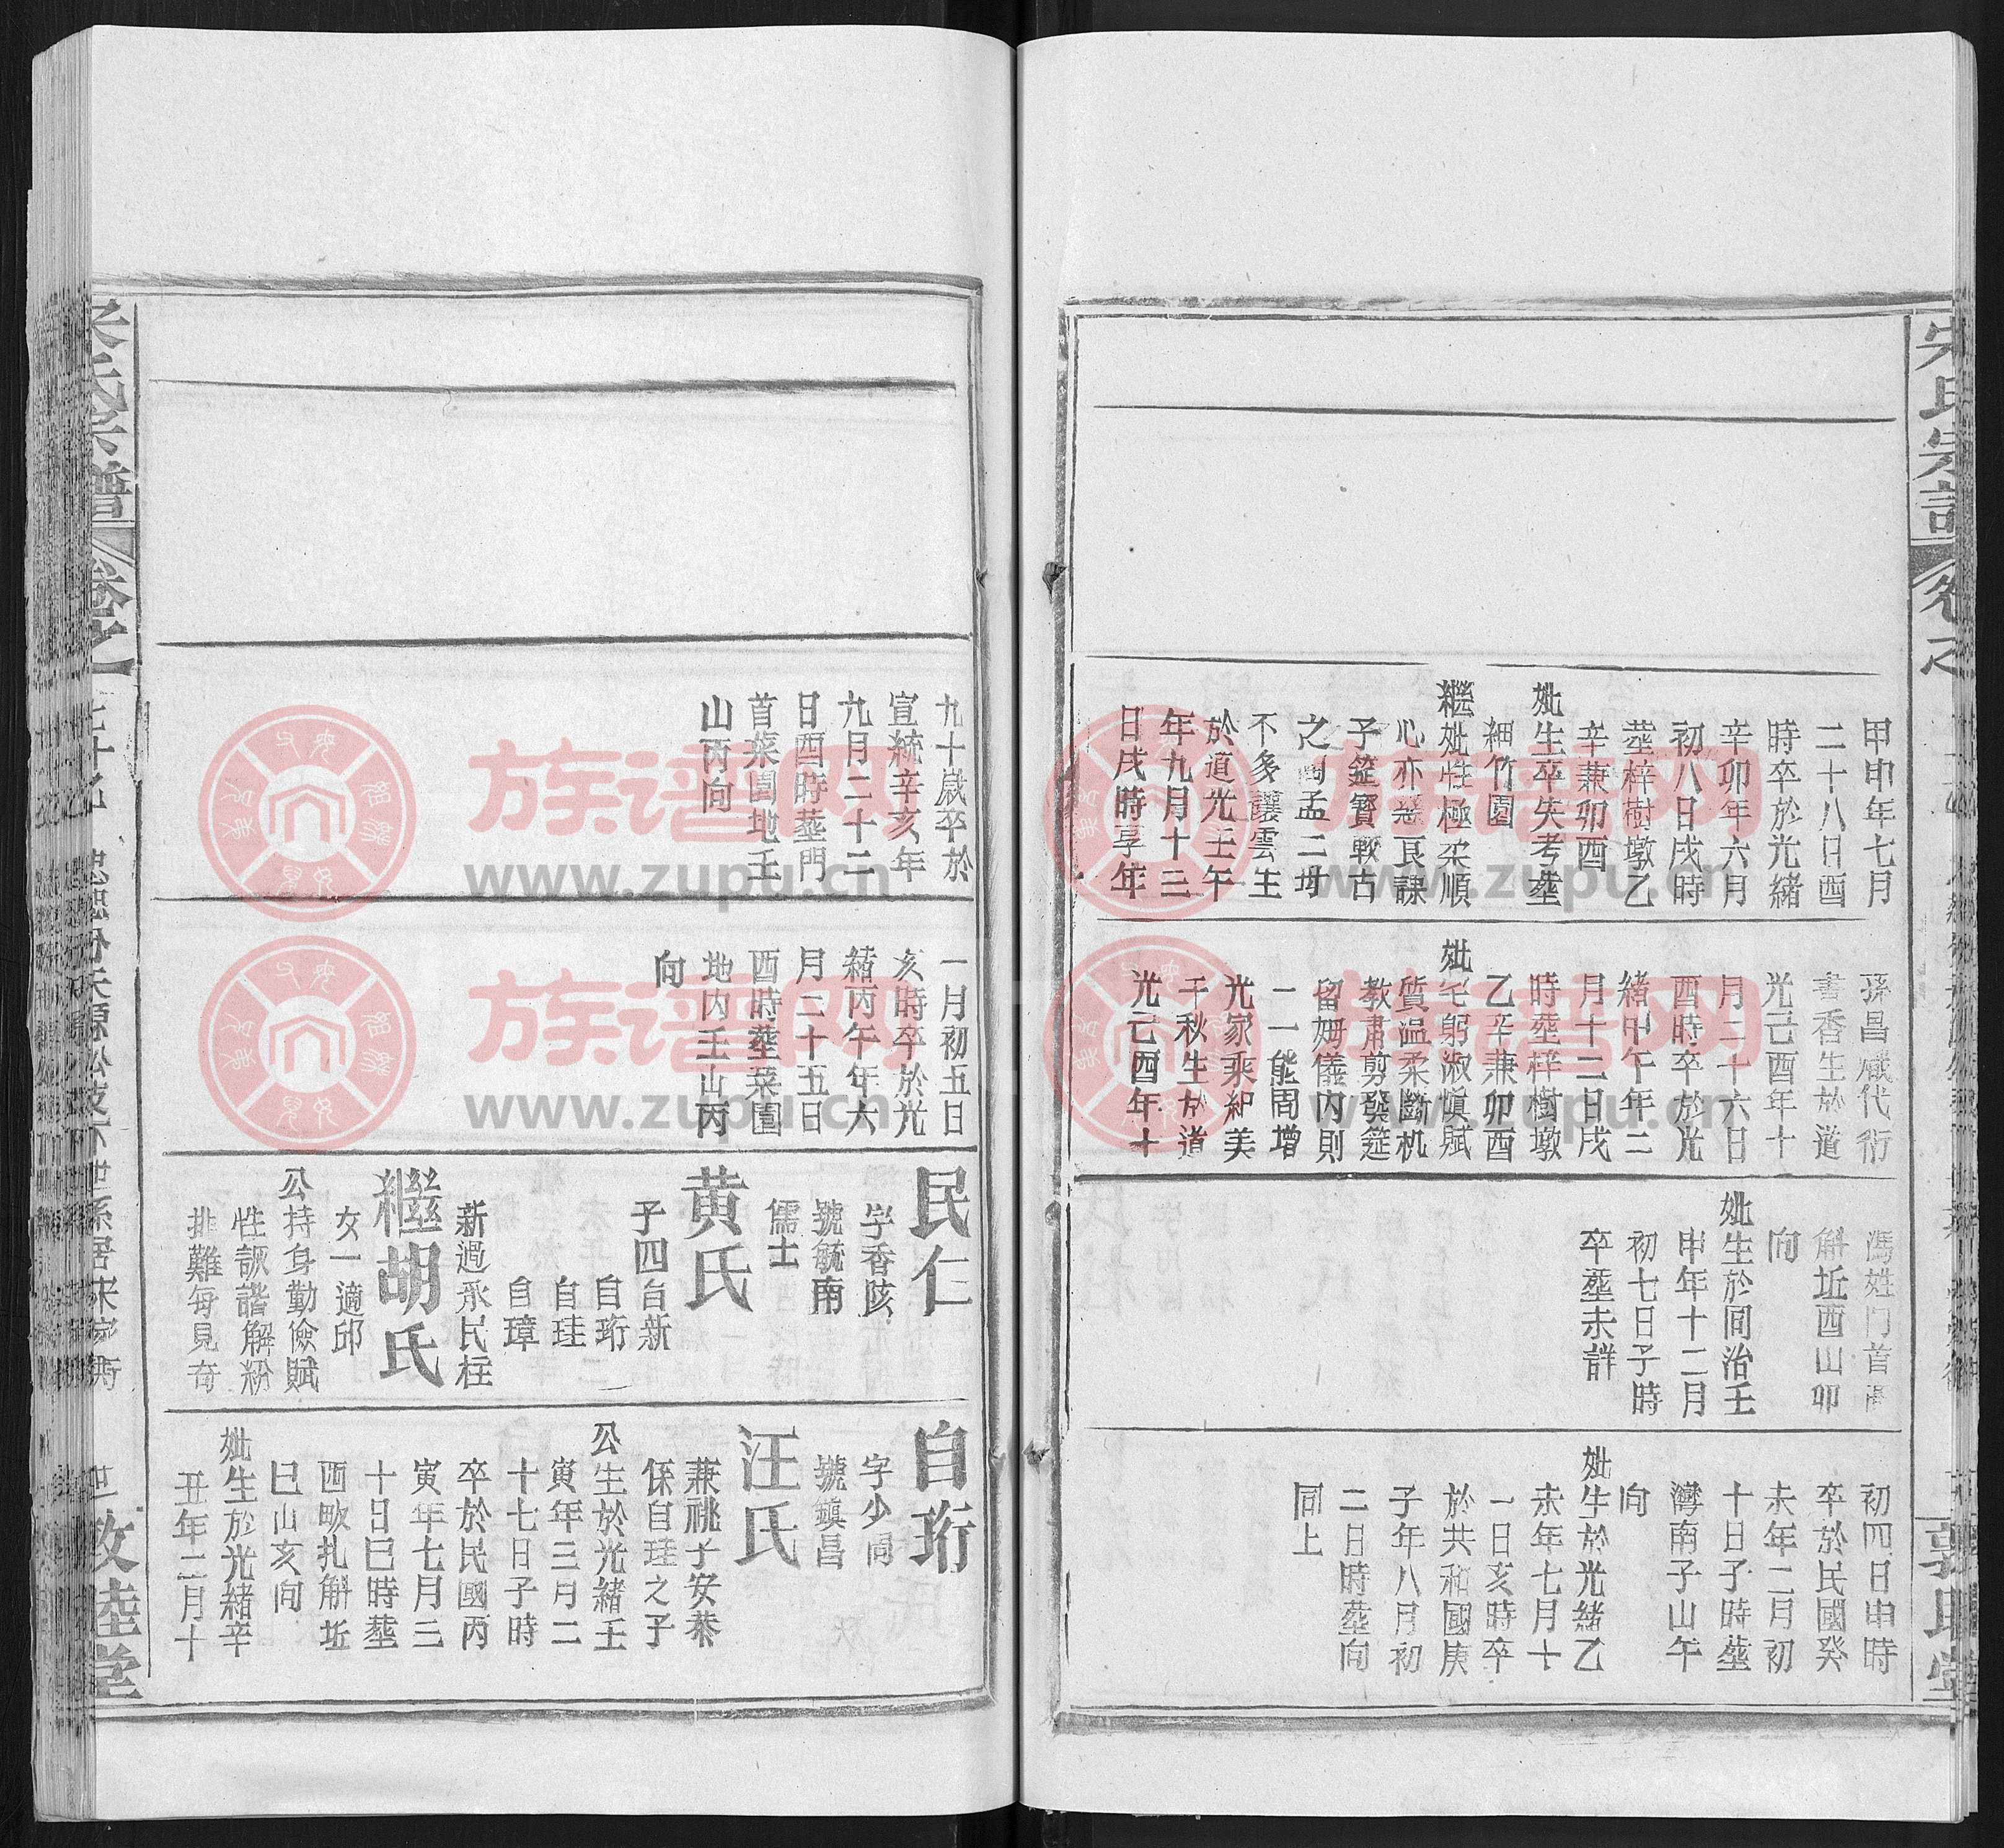 宋氏宗譜
卷之
甲申年七月
二十八日酉
時卒於光緒
辛卯年六月
初八日戌時
塟梓樹墩乙
辛兼卯酉
妣生卒失考塟
細竹園
繼妣性極柔順
心亦慈良課
子篤實戰古
之陶孟二母
不多讓雲生
於道光壬午
年九月十三
日戌時享年
孫昌熾代衍
書香生於道
光己酉年十
月二十六日
酉時卒於光
緒甲午年二
月十二日戌
時塟梓樹墩
乙辛兼卯酉
妣宅躬淑慎賦
質温柔斷机
教肅剪髮筵
留姆儀内則
一一能閑增
光家乘紀美
千秋生於道
光己酉年十
馮姓门首
斛坵酉山卯
向
妣生於同治壬
申年十二月
初七日子時
卒塟未詳
初四日申時
卒於民國癸
未年二月初
十日子時塟
灣南子山午
向
妣生於光緒乙
未年七月十
一日亥時卒
於共和國庚
子年八月初
二日時塟向
同上
九十歲卒於
宣統辛亥年
九月二十二
日酉時塟門
首菜園地壬
山丙向
一月初五日
亥時卒於光
緒丙午年六
月二十五日
酉時塟菜園
地内壬山丙
向
民仁
字香陔
號毓南
儒士
黄氏
子四自新
自珩
自珪
自璋
新過承民柱
繼胡氏
女一適邱
公持身勤儉賦
性詼諧解紛
排難每見奇
自珩
字少周
號鎮昌
汪氏
兼祧子安恭
係自珪之子
公生於光緒壬
寅年三月二
十七日子時
卒於民國丙
寅年七月三
十日巳時塟
酉畈扎斛坵
巳山亥向
妣生於光緒辛
丑年二月十
宋氏宗譜
卷之一
敦睦堂
族谱网
www.zupu.cn
族谱网
www.zupu.cn
族谱网
www.zupu.cn
族谱网
www.zupu.cn